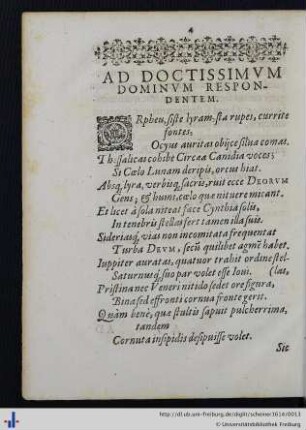 4
AD DOCTISSIMVM
DOMINVM RESPON-
DENTEM.
ORpheu, siste lyram, sta rupes, currite
fontes,
Ocyus auritas obijce silua comas.
Thessalicas cohibe Circæa Canidia voces;
Si Cœlo Lunam deripis, orcus hiat.
Absq, lyra, verbisq, sacris, ruit ecce DEORVM
Gens; & humi, cælo quæ nituere micant.
Et licet á sola niteat face Cynthia solis,
In tenebris stellas fert tamen illa suis.
Sideriasq, vias non incomitata frequentat
Turba DEVM, secū quilibet agmē habet.
Iuppiter auratas, quatuor trahit ordine stel-
Saturnusq, suo par volet esse Ioui. (las,
Pristina nec Veneri nitido sedet ore figura,
Bina sed effronti cornua fronte gerit.
Quàm benè, quæ stultū saput pulcherrima,
tandem
Cornuta insipidis desipuisse volet.
Sic
http://dl.ub.uni-freiburg.de/diglit/scheiner1614/0011
© Universitätsbibliothek Freiburg